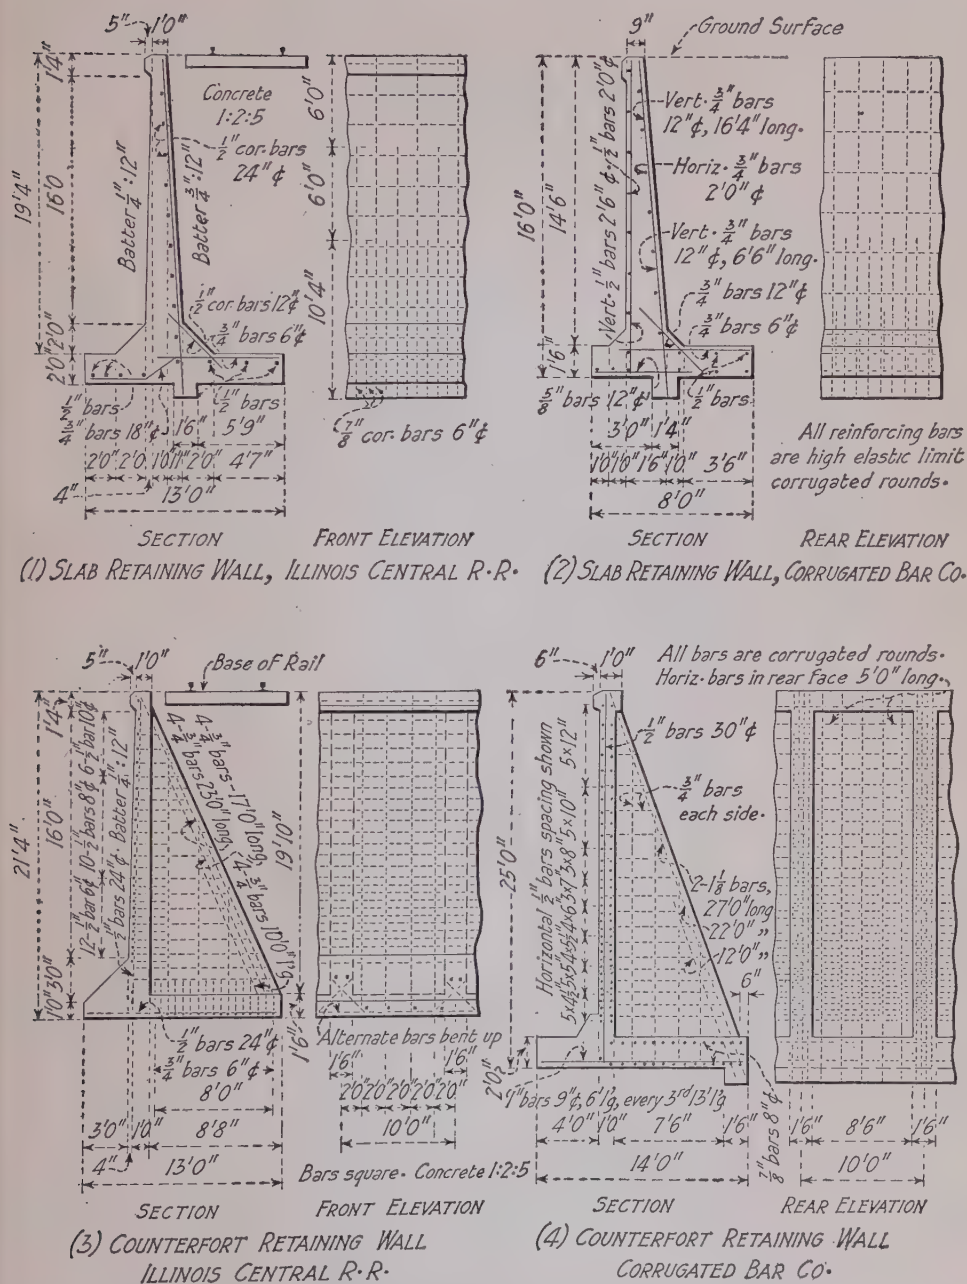 5" 1'0"
1'4"
19'4"
16'0
2'0"
2'0"
Batter 1/4":12"
Batter 3/4":12"
Concrete
1:2:5
1/2" cor. bars
24" ¢
1/2" cor. bars 12" ¢
3/4" bars 6" ¢
1/2" bars
3/4" bars 18" ¢
1/2" bars
1'6" 5'9"
2'0" 2'0 1'0 1'1" 2'0" 4'7"
4"
13'0"
6'0"
6'0"
10'4"
7/8" cor. bars 6" ¢
SECTION
FRONT ELEVATION
(1) SLAB RETAINING WALL, ILLINOIS CENTRAL R·R·
9"
Ground Surface
16'0"
14'6"
1'6"
Vert· 1/2" bars 2'6" ¢· 1/2" bars 2'0" ¢
Vert· 3/4" bars
12" ¢, 16'4" long·
Horiz· 3/4" bars
2'0" ¢
Vert· 3/4" bars
12" ¢, 6'6" long·
3/4" bars 12" ¢
3/4" bars 6" ¢
5/8" bars 12" ¢
1/2" bars
3'0" 1'4"
1'0" 1'0" 1'6" 1'0" 3'6"
8'0"
All reinforcing bars
are high elastic limit
corrugated rounds·
SECTION
REAR ELEVATION
(2) SLAB RETAINING WALL, CORRUGATED BAR CO·
5" 1'0"
Base of Rail
21'4"
1'4"
16'0"
3'0"
10"
12-1/2" bar 6" ¢ 10-1/2" bars 8" ¢ 6-1/2" bar 10" ¢
1/2" bars 24" ¢ Batter 1/4":12"
4-3/4" bars-17'0" long
4-3/4" bars 23'0" long
4-3/4" bars 10'0" l'g
19'10"
1'6"
1/2" bars 24" ¢
3/4" bars 6" ¢
8'0"
3'0" 1'0" 8'8"
4"
13'0"
Alternate bars bent up
1'6" 1'6"
2'0" 2'0" 2'0" 2'0" 2'0"
10'0"
Bars square· Concrete 1:2:5
SECTION
FRONT ELEVATION
(3) COUNTERFORT RETAINING WALL
ILLINOIS CENTRAL R·R·
6" 1'0"
All bars are corrugated rounds·
Horiz· bars in rear face 5'0" long·
25'0"
2'0"
Horizontal 1/2" bars spacing shown
5×12"
1/2" bars 30" ¢
3/4" bars
each side·
2-1 1/8" bars,
27'0" long
22'0" "
12'0" "
6"
1" bars 9" ¢, 6' l'g, every 3rd 13' l'g
7/8" bars 8" ¢
4'0" 1'0" 7'6" 1'6"
14'0"
1'6" 8'6" 1'6"
10'0"
SECTION
REAR ELEVATION
(4) COUNTERFORT RETAINING WALL
CORRUGATED BAR CO·